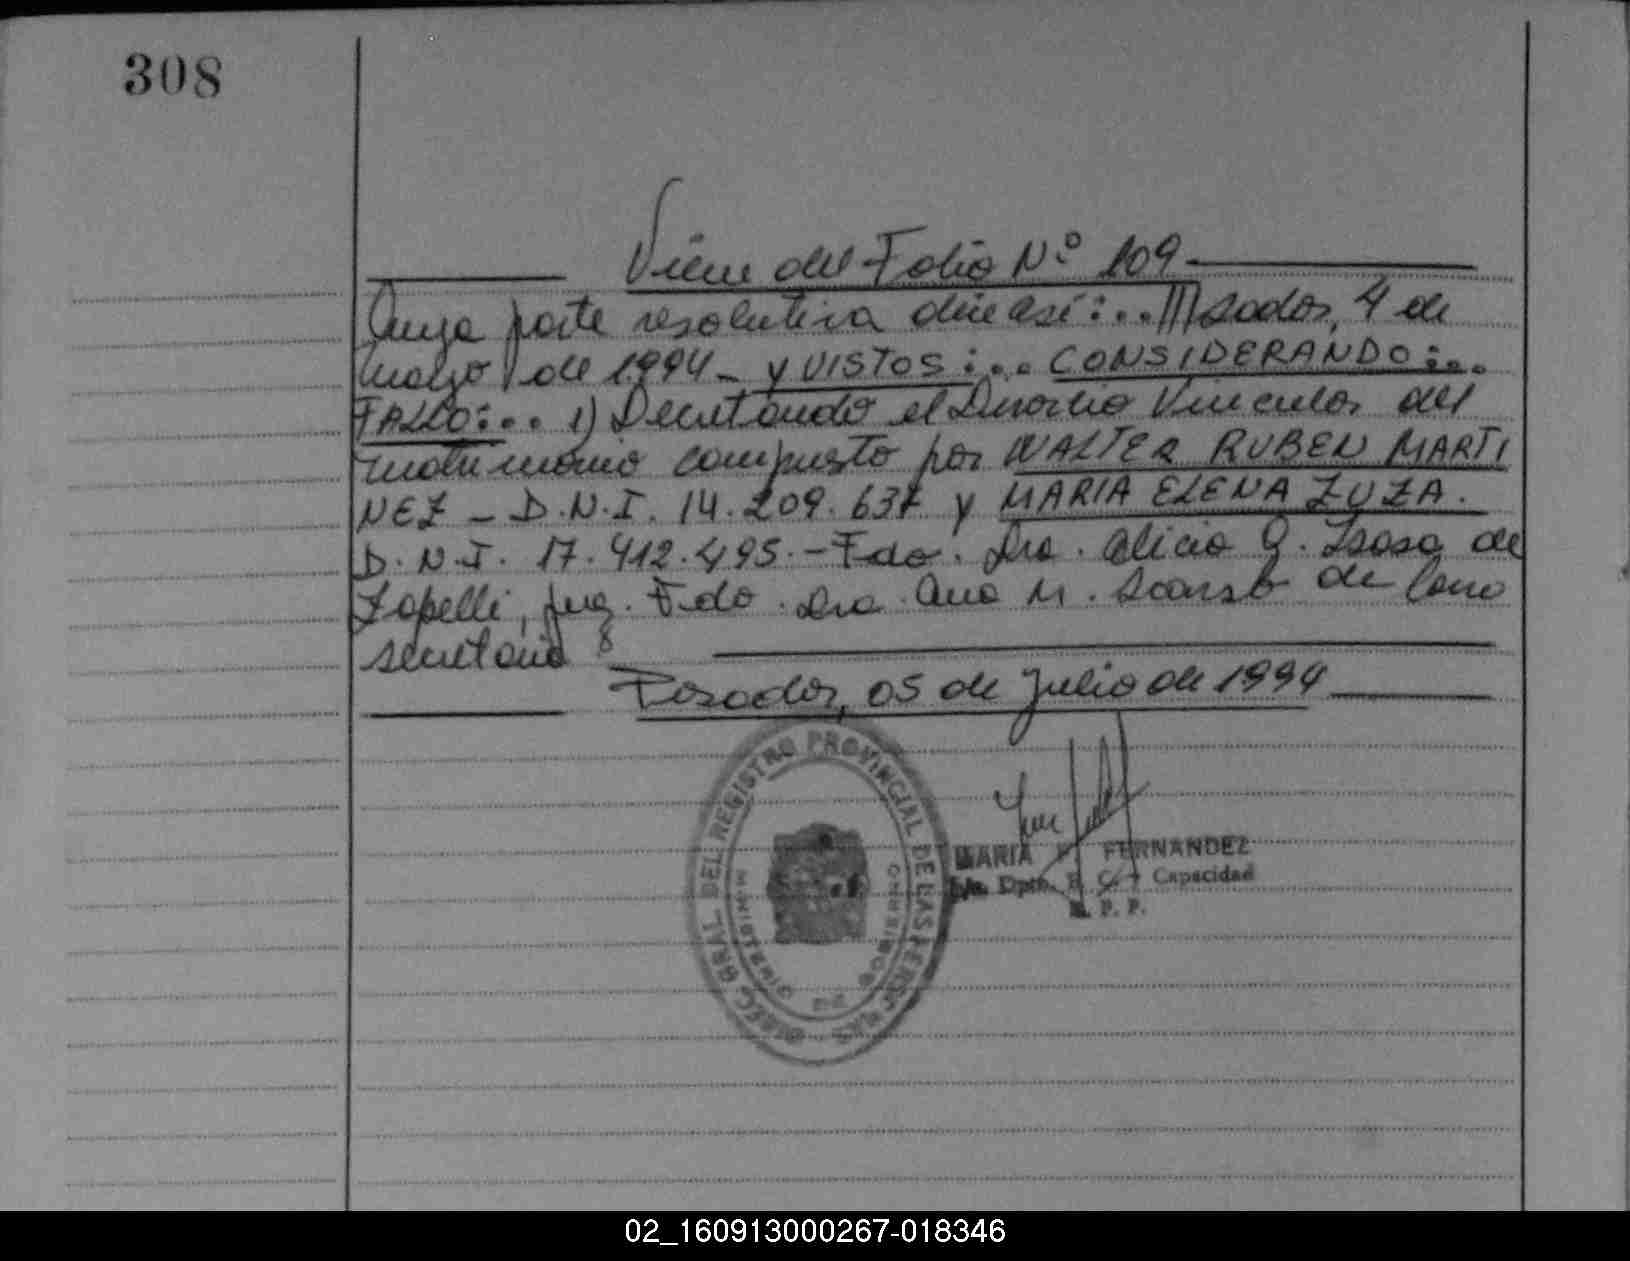 308
Viene del Folio Nº 109
Cuya parte resolutiva dice así:.. Posadas, 4 de
marzo de 1994 - y VISTOS:.. CONSIDERANDO:..
FALLO:.. 1) Decretando el Divorcio Vincular del
matrimonio compuesto por WALTER RUBEN MARTI
NEZ - D.N.I. 14.209.637 y MARIA ELENA ZUZA.
D.N.I. 17.412.495.- Fdo. Dra. Alicia G. Isasa de
Zapelli, Juez. Fdo. Dra. Ana M. de Cano
secretaria
Posadas, 05 de Julio de 1994
DIREC. GRAL. DEL REGISTRO PROVINCIAL DE LAS PERSONAS
MINISTERIO DE GOBIERNO
MARIA FERNANDEZ
Dpto. E. C. y Capacidad
R. P. P.
02_160913000267-018346